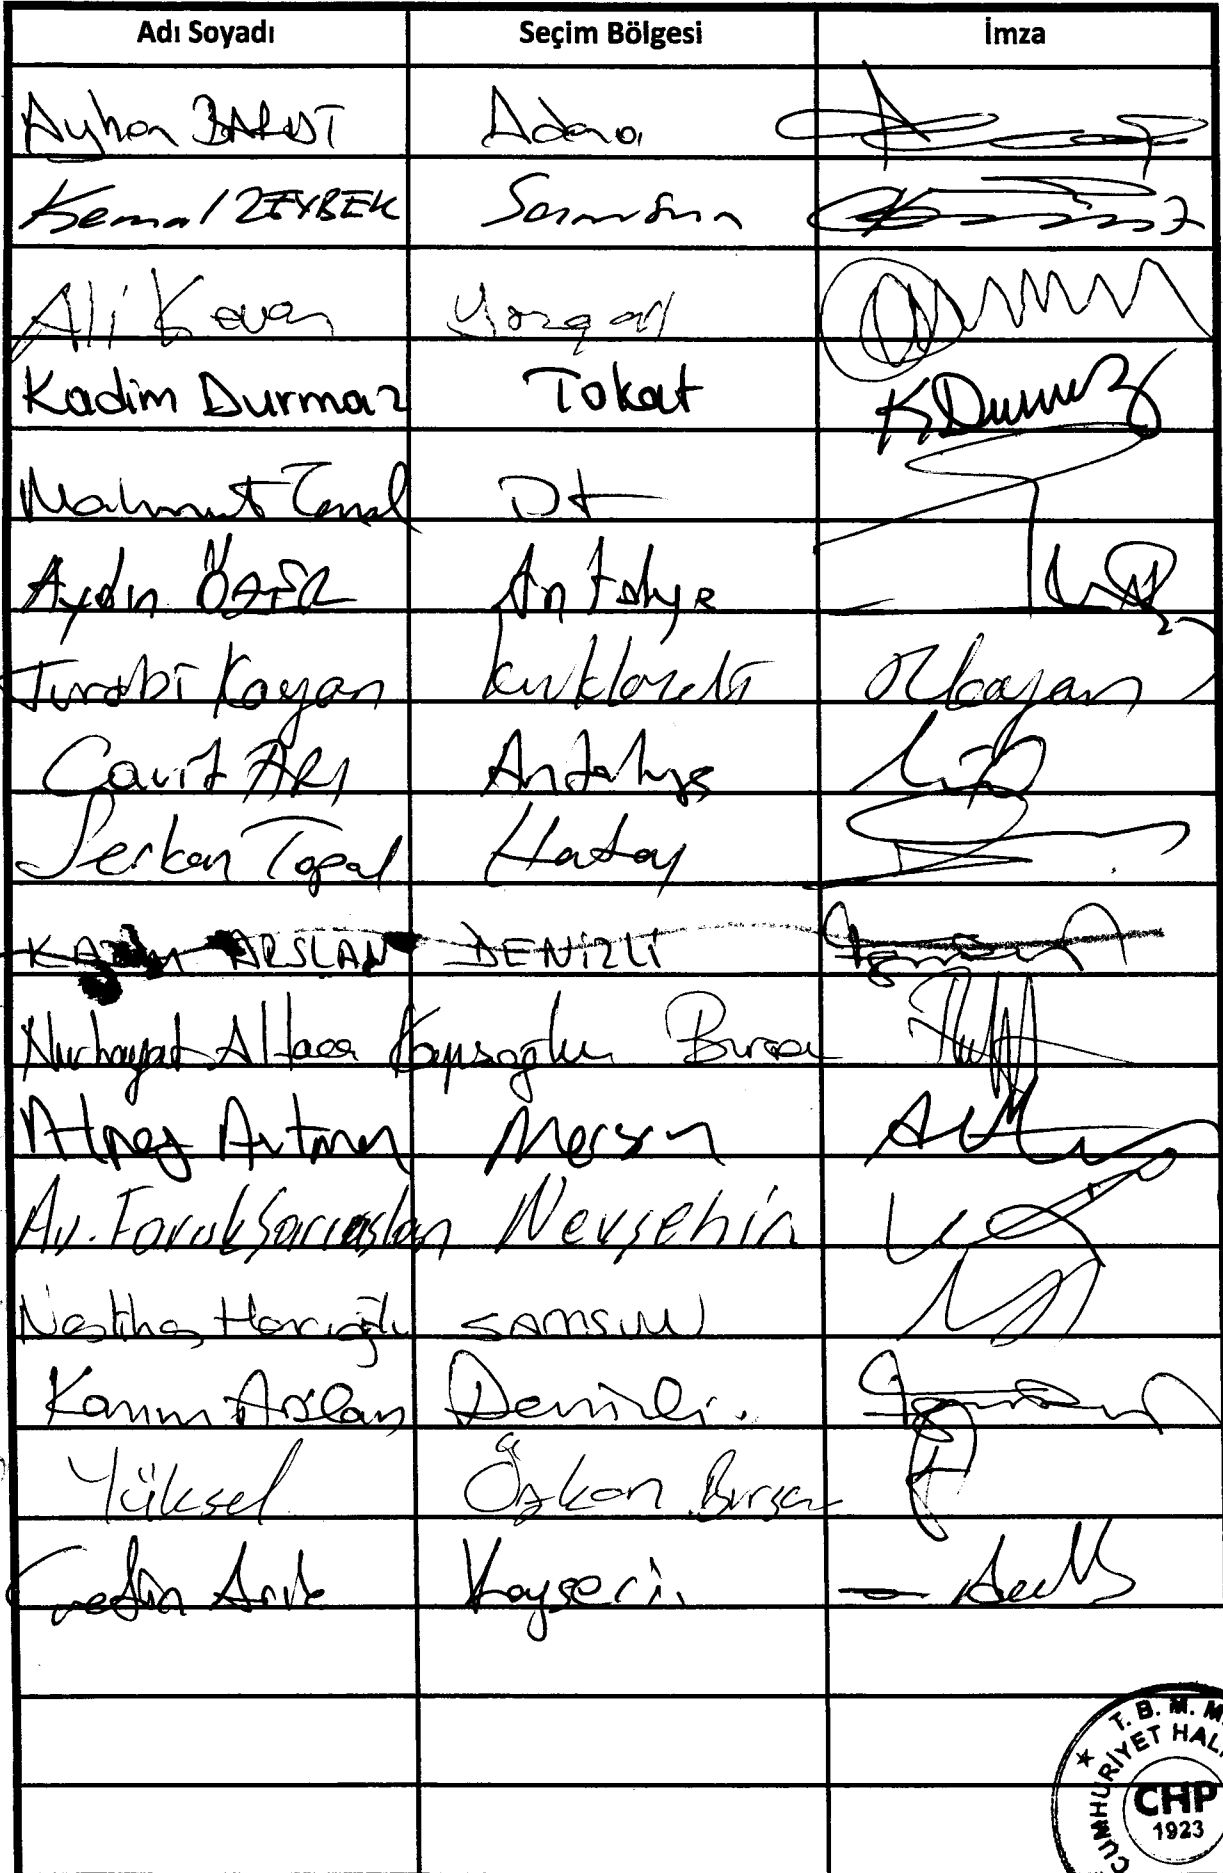 Adı Soyadı Seçim Bölgesi İmza
Ayhan BARUT Adana
Kemal ZEYBEK Samsun
Ali Keven Yozgat
Kadim Durmaz Tokat K Durmaz
Mahmut Tanal
Aydın ÖZER Antalya
Turabi Kayan Kırklareli Kayan
Cavit ARI Antalya
Serkan Topal Hatay
KAZIM ARSLAN DENİZLİ
Nurhayat Altaca Kayışoğlu Bursa
Alpay Antmen Mersin
Av. Faruk Sarıaslan Nevşehir
Neslihan Hancıoğlu SAMSUN
Kazım Arslan Denizli.
Yüksel Özkan Bursa
Çetin Arık Kayseri
T. B. M. M.
CUMHURİYET HAL
CHP
1923